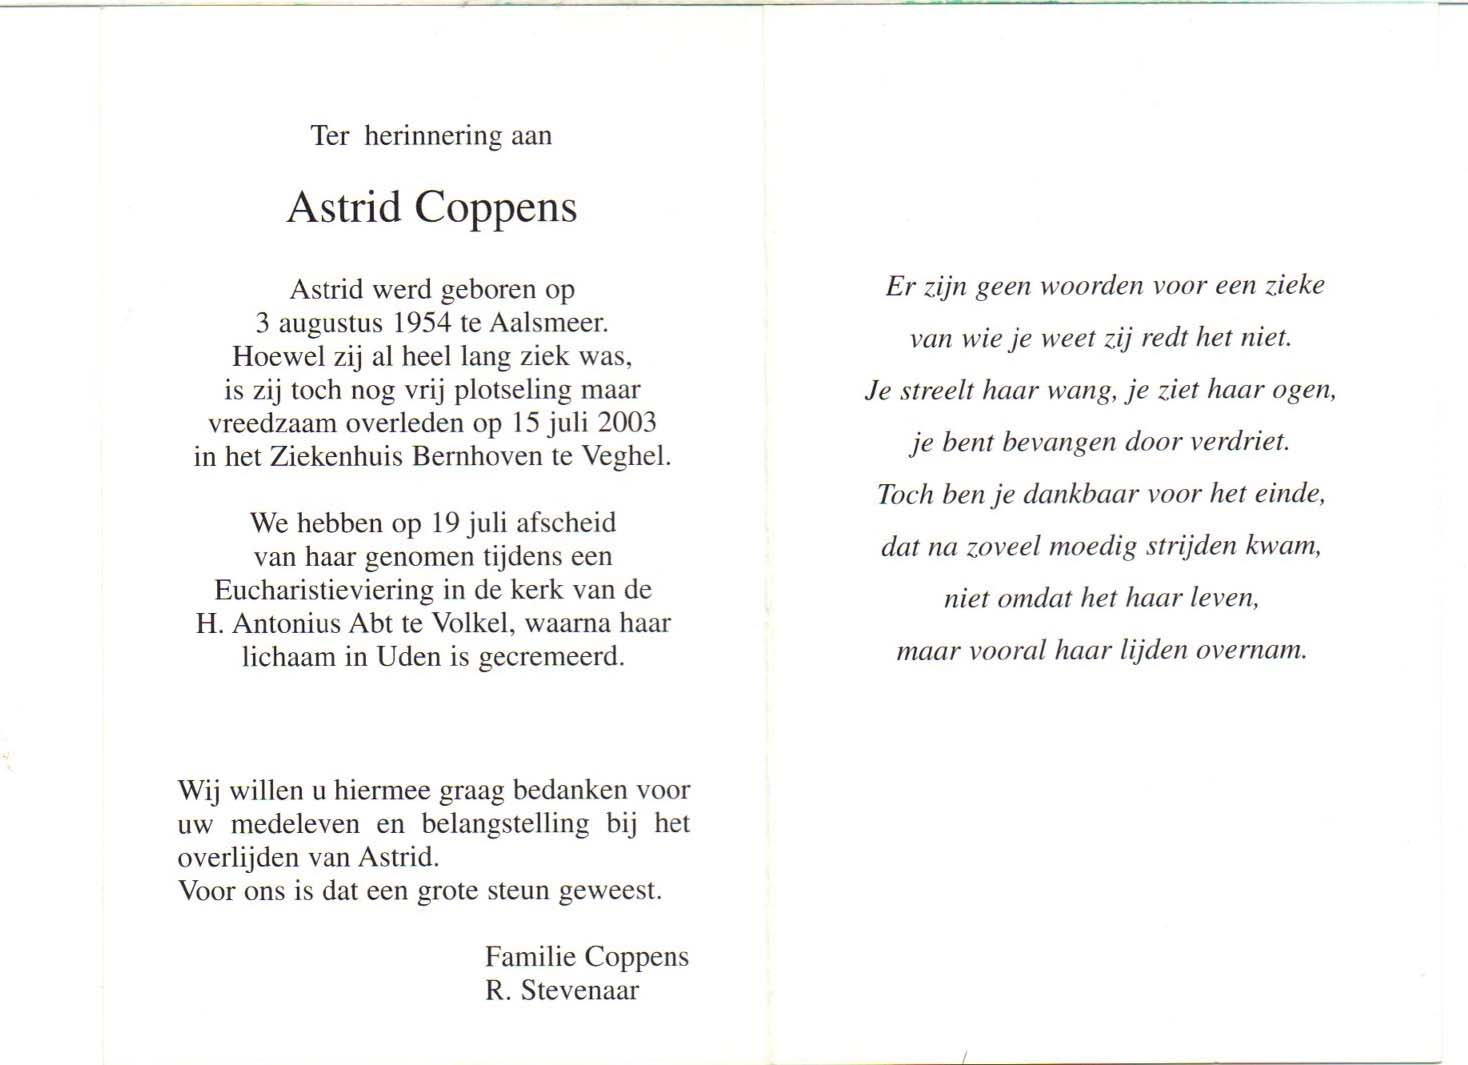 Ter herinnering aan
Astrid Coppens
Astrid werd geboren op
3 augustus 1954 te Aalsmeer.
Hoewel zij al heel lang ziek was,
is zij toch nog vrij plotseling maar
vreedzaam overleden op 15 juli 2003
in het Ziekenhuis Bernhoven te Veghel.
We hebben op 19 juli afscheid
van haar genomen tijdens een
Eucharistieviering in de kerk van de
H. Antonius Abt te Volkel, waarna haar
lichaam in Uden is gecremeerd.
Wij willen u hiermee graag bedanken voor
uw medeleven en belangstelling bij het
overlijden van Astrid.
Voor ons is dat een grote steun geweest.
Familie Coppens
R. Stevenaar
Er zijn geen woorden voor een zieke
van wie je weet zij redt het niet.
Je streelt haar wang, je ziet haar ogen,
je bent bevangen door verdriet.
Toch ben je dankbaar voor het einde,
dat na zoveel moedig strijden kwam,
niet omdat het haar leven,
maar vooral haar lijden overnam.